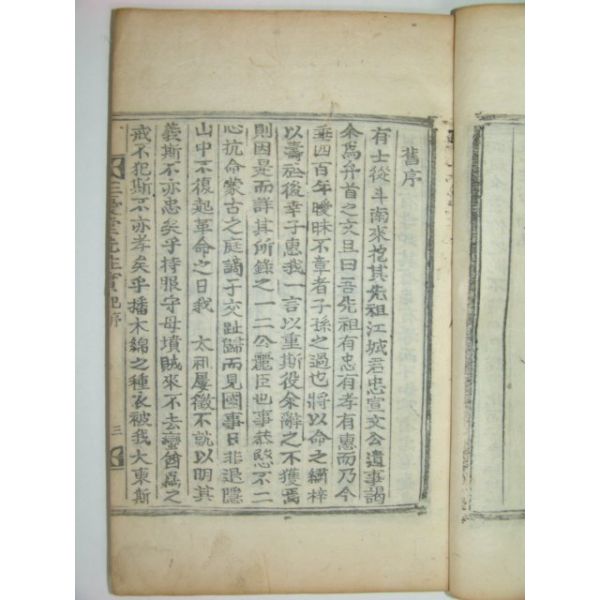 舊序
有士從斗南來抱其先祖江城君忠宣文公遺事謁
余爲弁首之文且曰吾先祖有忠有孝有惠而乃今
垂四百年曖昧不章者子孫之過也將以命之繡梓
以壽祖後幸子惠我一言以重斯役余辭之不獲焉
則因是而詳其所錄之一二公麗臣也事恭愍不二
心抗命蒙古之庭謫于交趾歸而見國事日非退隱
山中不復起革命之日我 太祖屢徵不就以明其
義斯不亦忠矣乎持服守母墳賊來不去蠻酋爲之
戒不犯斯不亦孝矣乎播木綿之種衣被我大東斯
三憂堂先生實記序 三